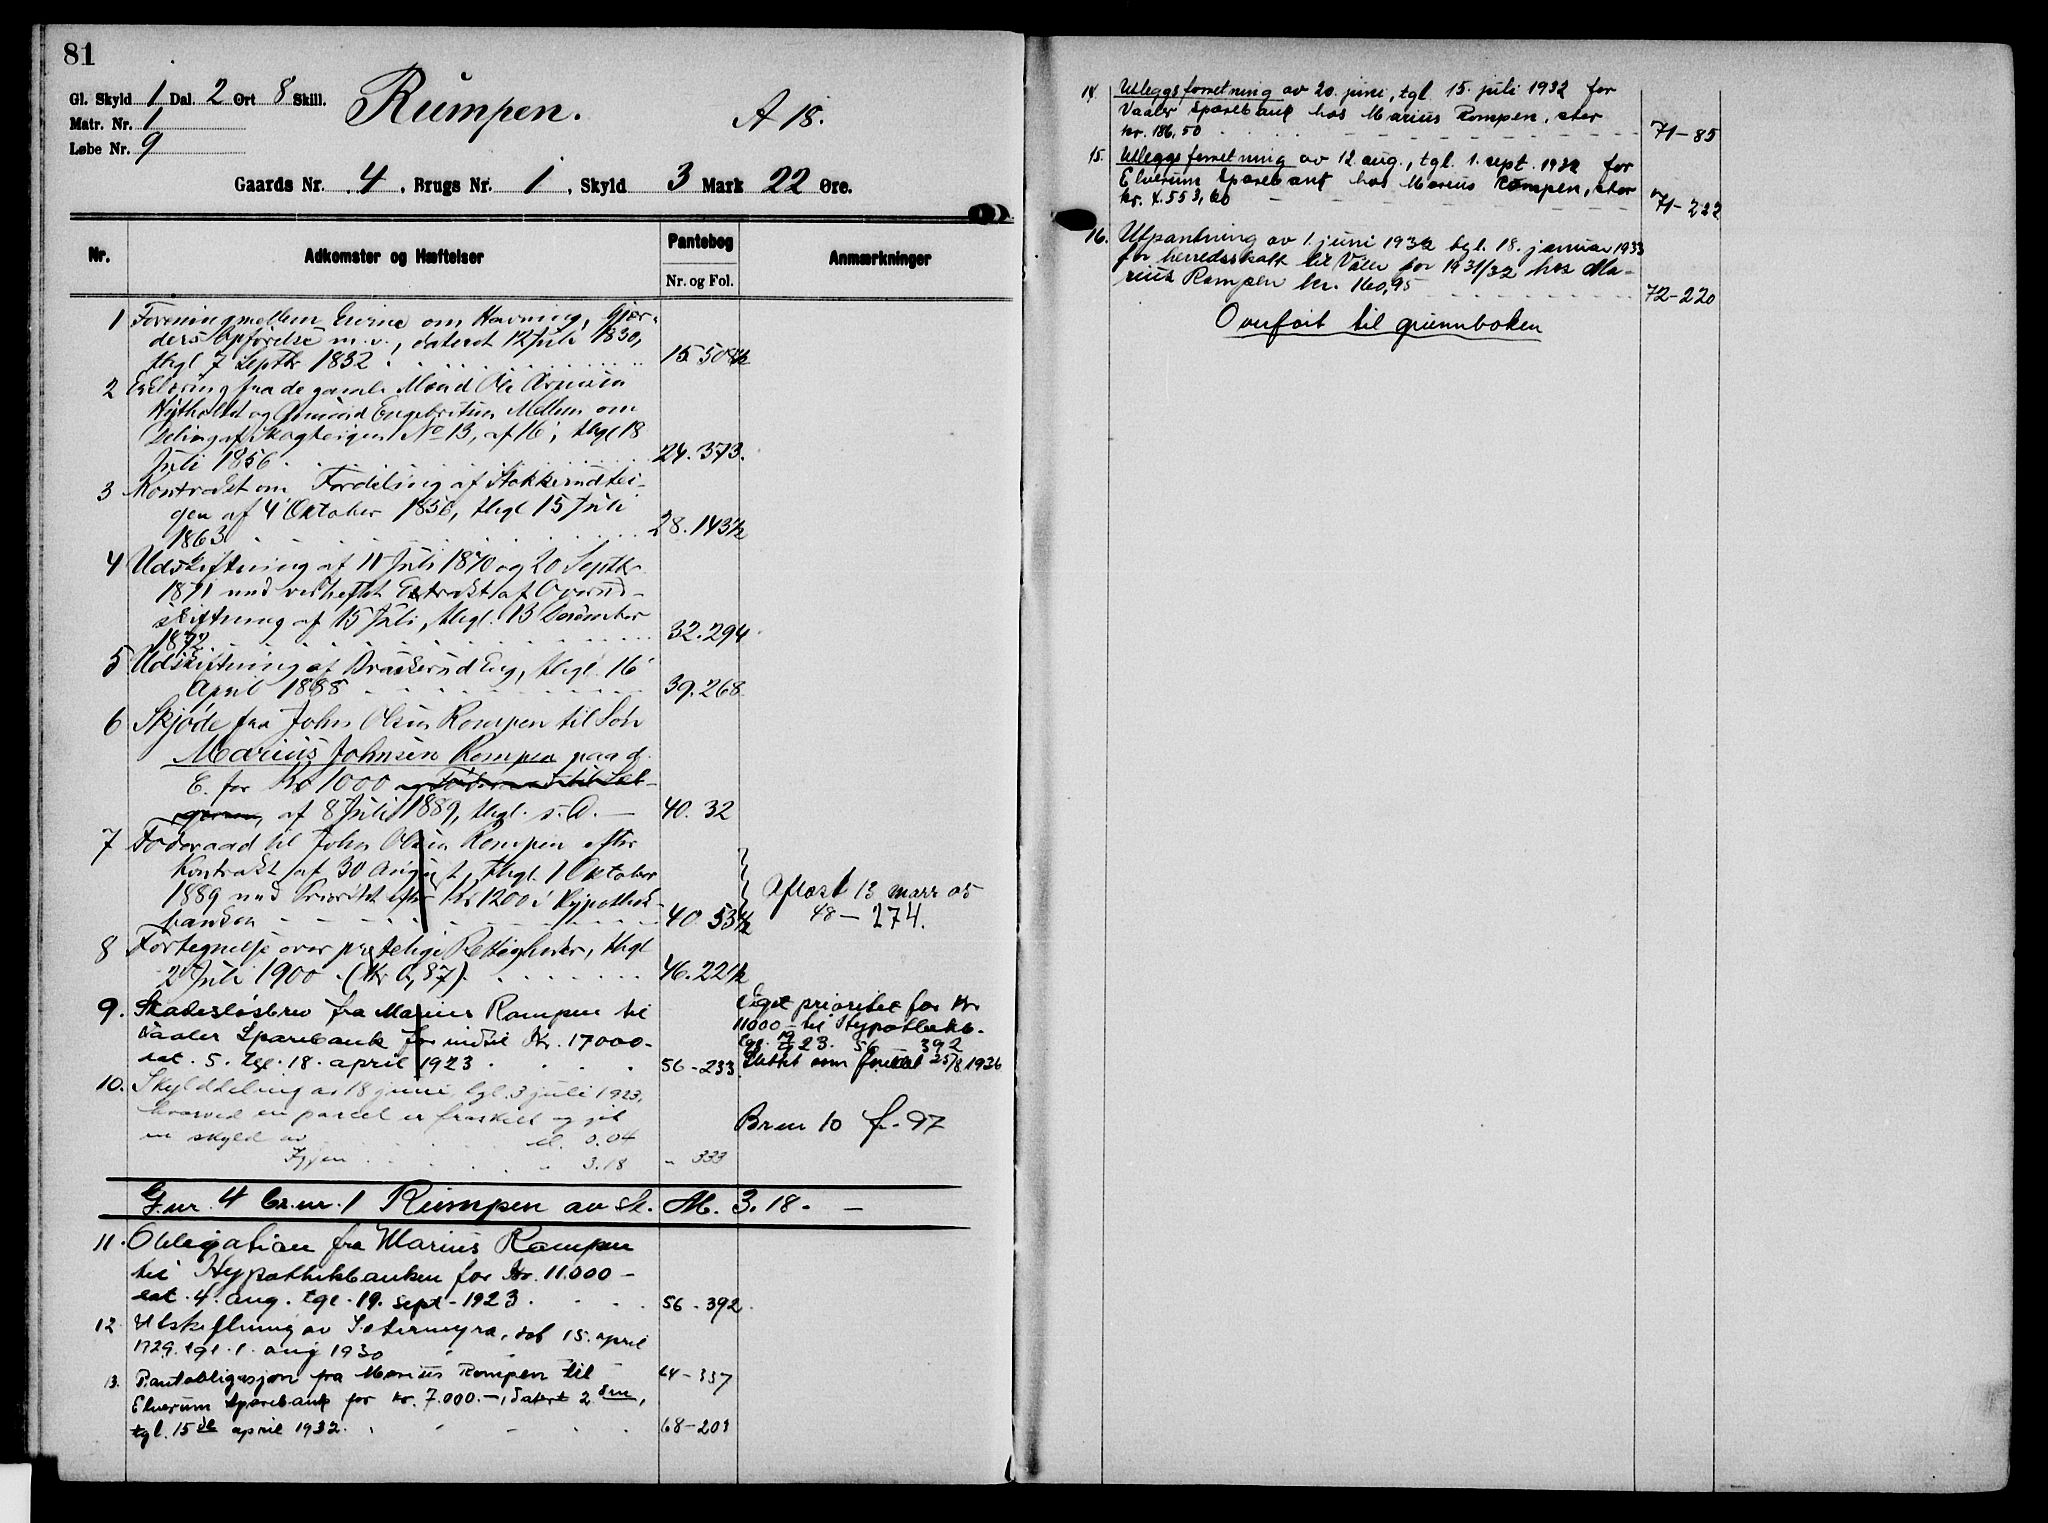 81
Gl. Skyld 1 Dal. 2 Ort 8 Skill.
Matr. Nr. 1
Løbe Nr. 9
Rumpen.
A 18.
Gaards Nr. 4, Brugs Nr. 1, Skyld 3 Mark 22 Øre.
Nr. Adkomster og Hæftelser Pantebog Nr. og Fol. Anmærkninger
1 Forening mellem Eierne om Havning, Gjær-
ders Opførelse m. v., dateret 12 Juli 1830,
thgl 7 Septbr 1832 . 15 508½
2 Erklæring fra de gaml. Mænd Ole Arnesen
og Engebretsen Mellem om
Deling af Skogteigen No 13, af 16, thgl 18
Juli 1856 . 24. 373.
3 Kontrakt om Fordeling af Stokkerudtei-
gen af 4 Oktober 1856, thgl 15 Juli
1863 28. 143½
4 Udskiftning af 11 Juli 1870 og 20 Septbr
1871 med vedheftet Extrakt af Overud-
skiftning af 15 Juli, thgl. 13 December
1872. 32. 294
5 Udskiftning af Braskerud Eng, thgl. 16
April 1888 39. 268
6 Skjøde fra John Olsen Rompen til Søn
Marius Johnsen Rompen paa d.
E. for Kr 1000 og Føderaad til Sæl-
geren, af 8 Juli 1889, thgl. s. D. — 40. 32
7 Føderaad til John Olsen Rompen efter
Kontrakt af 30 August, thgl. 1 Oktober
1889 med Prioritet efter Kr 1200 i Hypothek-
banken 40. 53½
Aflæst 13 mars 05
48 — 274.
8 Fortegnelse over Rettigheder, thgl
2 Juli 1900 . (Kr 0,87) . 46. 221½
9. Skadesløsbrev fra Marius Rompen til
Vaaler Sparebank for indtil Kr. 17000-
dat. 5. tgl. 18. april 1923 . 56 - 233
Veget prioritet for Kr
11000 - til Hypothekb.
tgl. 19/9 23. 56 - 392
Slettet som 25/8 1936
10. Skylddeling av 18 juni, tgl. 3 juli 1923,
hvorved en parcel er fraskilt og git
en skyld av M. 0.04
Igjen . . . " 3.18 " 333
Br.nr 10 f. 97
G.nr. 4 br.nr. 1 Rumpen av Sk. M. 3.18. —
11. Obligation fra Marius Rompen
til Hypothekbanken for Kr. 11.000 -
dat. 4. aug. tgl. 19. sept - 1923 . 56 - 392.
12. Utskiftning av Setermyra, dat 15. april
1929. tgl. 1. aug 1930 64 - 337
13. Pantobligasjon fra Marius Rompen til
Elverum Sparebank for kr. 7.000.—, datert 2 den,
tgl. 15de april 1932. 68 - 203
14. Utleggsforretning av 20. juni, tgl. 15. juli 1932 for
Vaaler Sparebank hos Marius Rompen, stor
kr. 186,50 71 - 85
15. Utleggsforretning av 12. aug., tgl. 1. sept. 1932 for
Elverum Sparebank hos Marius Rompen, stor
kr. 4.553,60 71 - 222
16. Utpantning av 1. juni 1932 tgl. 18. januar 1933
for herredsskatt til Våler for 1931/32 hos Ma-
rius Rompen kr. 160,95 72 - 220
Overført til grunnboken